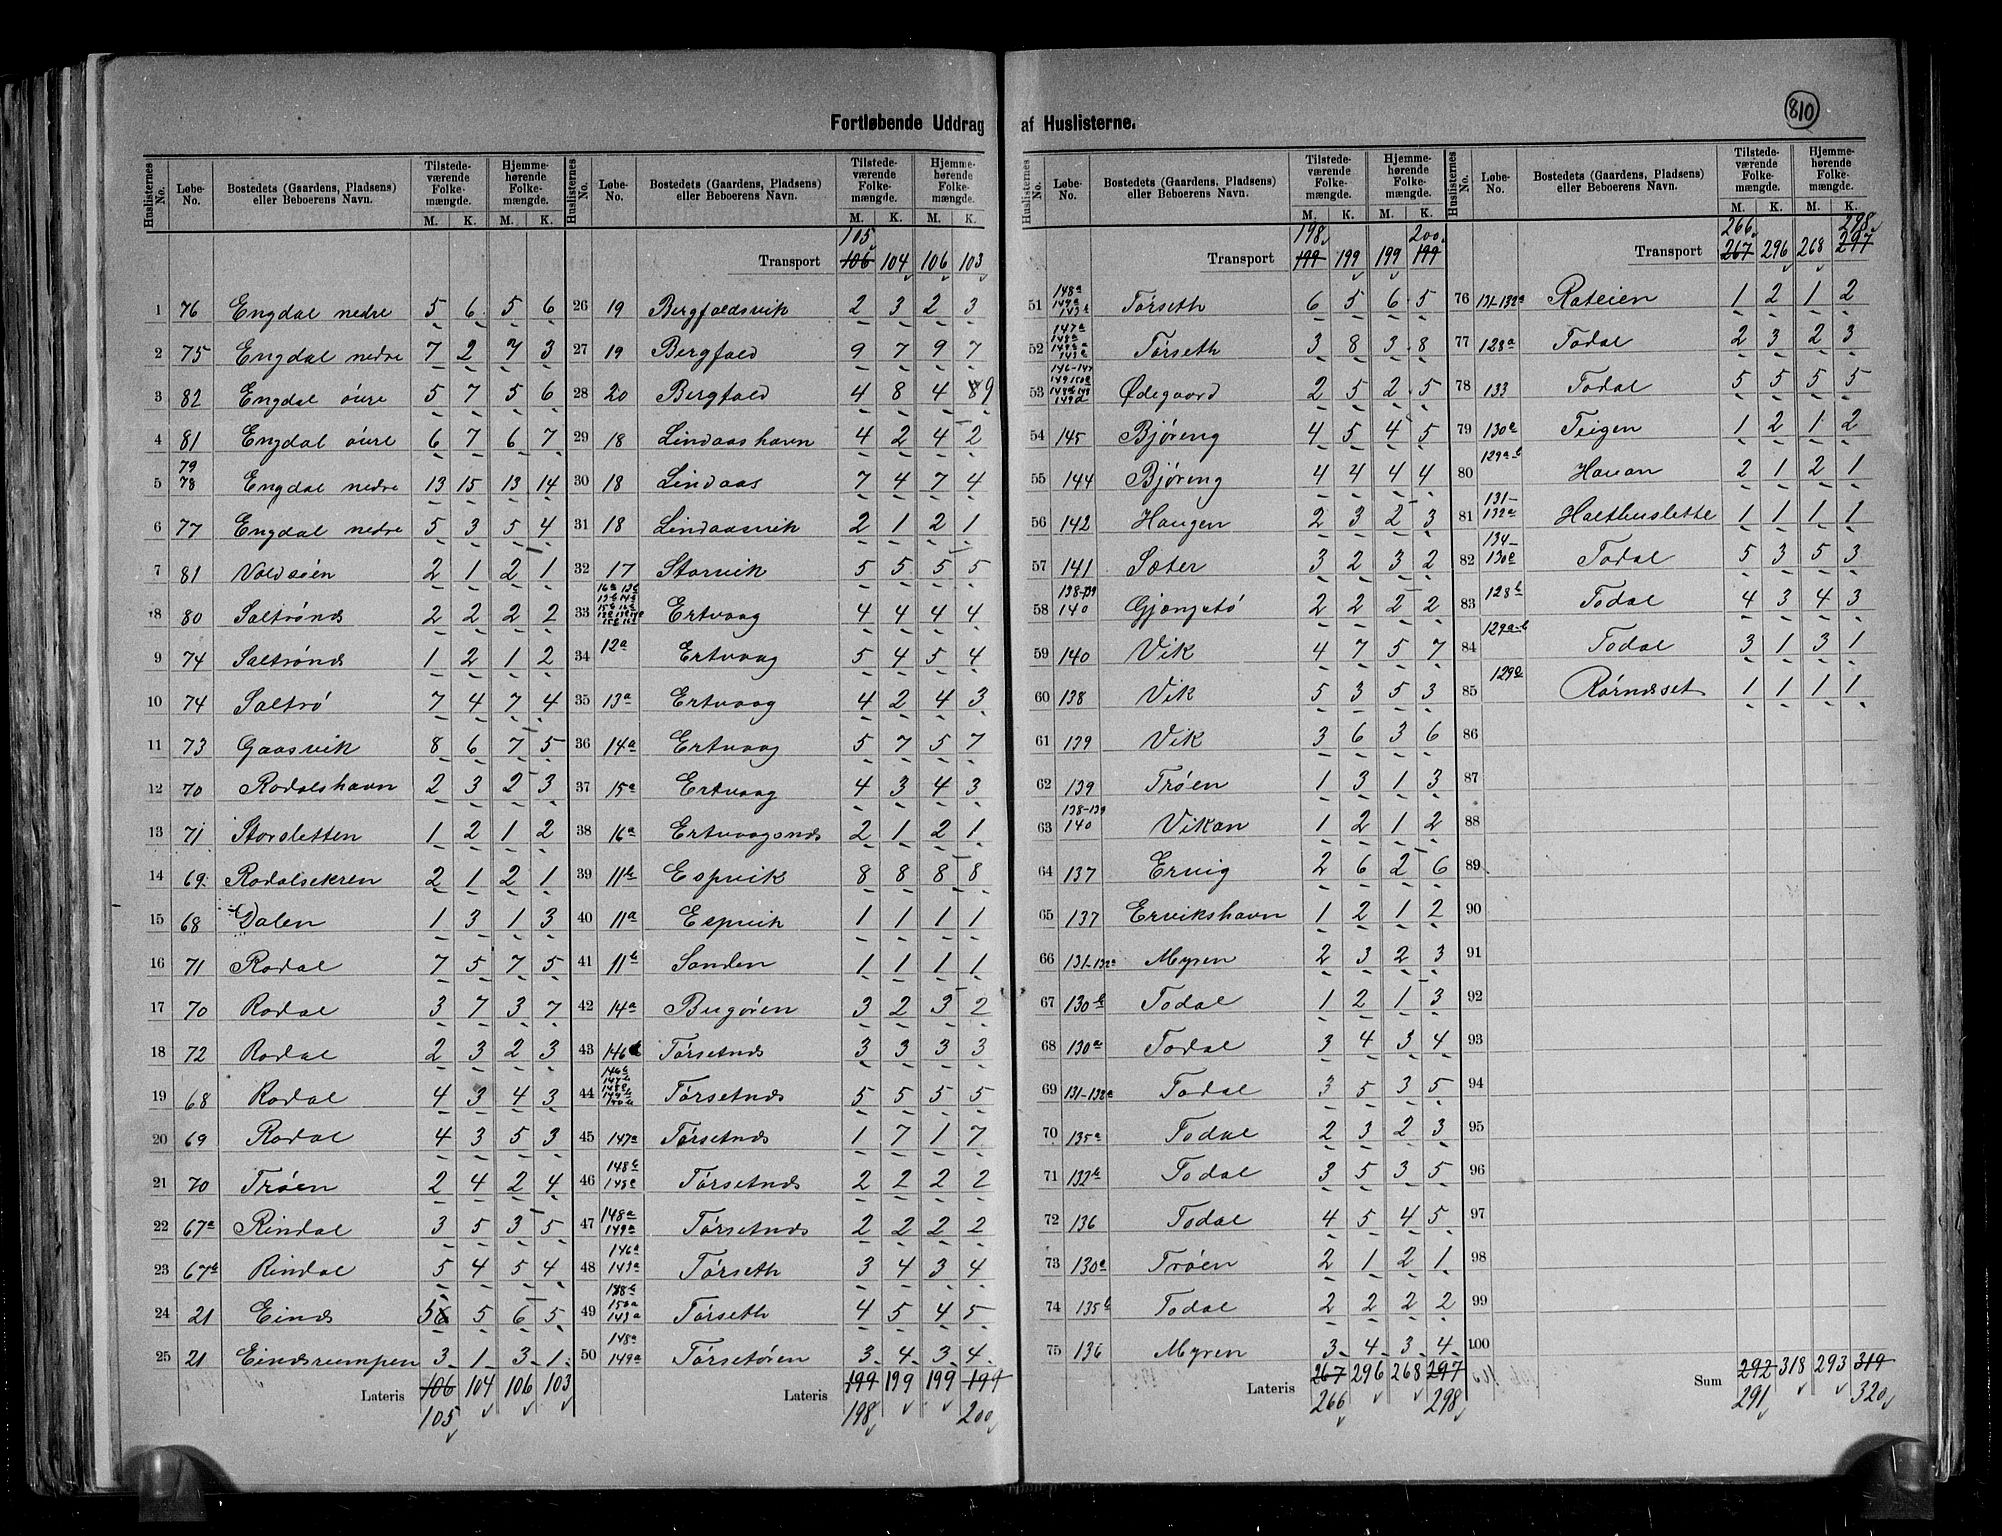 810
Fortløbende Uddrag af Huslisterne.
Huslisternes No. | Løbe-No. | Bostedets (Gaardens, Pladsens) eller Beboerens Navn. | Tilstedeværende Folkemængde. M. K. | Hjemmehørende Folkemængde. M. K.
1 76 Engdal nedre 5 6 5 6
2 75 Engdal nedre 7 2 7 3
3 82 Engdal øure 5 7 5 6
4 81 Engdal øure 6 7 6 7
5 79 78 Engdal nedre 13 15 13 14
6 77 Engdal nedre 5 3 5 4
7 81 Voldsøen 2 1 2 1
8 80 Saltrønds 2 2 2 2
9 74 Saltrønds 1 2 1 2
10 74 Saltrø 7 4 7 4
11 73 Gaasvik 8 6 7 5
12 70 Rodalshavn 2 3 2 3
13 71 Storsletten 1 2 1 2
14 69 Rodalsekren 2 1 2 1
15 68 Dalen 1 3 1 3
16 71 Rodal 7 5 7 5
17 70 Rodal 3 7 3 7
18 72 Rodal 2 3 2 3
19 68 Rodal 4 3 4 3
20 69 Rodal 4 3 5 3
21 70 Trøen 2 4 2 4
22 67a Rindal 3 5 3 5
23 67b Rindal 5 4 5 4
24 21 Einds 5 5 6 5
25 21 Eindsrumpen 3 1 3 1
Lateris 106 104 106 103
105
105
Transport 106 104 106 103
26 19 Bergfaldsvik 2 3 2 3
27 19 Bergfald 9 7 9 7
28 20 Bergfald 4 8 4 9
29 18 Lindaashavn 4 2 4 2
30 18 Lindaas 7 4 7 4
31 18 Lindaasvik 2 1 2 1
32 17 Storvik 5 5 5 5
33 Ertvaag 4 4 4 4
34 12a Ertvaag 5 4 5 4
35 13a Ertvaag 4 2 4 3
36 14a Ertvaag 5 7 5 7
37 15a Ertvaag 4 3 4 3
38 16a Ertvaagsnds 2 1 2 1
39 11b Espvik 8 8 8 8
40 11a Espvik 1 1 1 1
41 11b Sanden 1 1 1 1
42 14a Bugøren 3 2 3 2
43 146 Tørsetnds 3 3 3 3
44 Tørsetnds 5 5 5 5
45 147a Tørsetnds 1 7 1 7
46 Tørsetnds 2 2 2 2
47 148a 149a Tørsetnds 2 2 2 2
48 146a 143a Tørseth 3 4 3 4
49 150a 143a Tørseth 4 5 4 5
50 148a 149a Tørsetøren 3 4 3 4
Lateris 199 199 199 199
198 200
198 200
Transport 199 199 199 199
51 Tørseth 6 5 6 5
52 Tørseth 3 8 3 8
53 Ødegaard 2 5 2 5
54 145 Bjøreng 4 5 4 5
55 144 Bjøreng 4 4 4 4
56 142 Haugen 2 3 2 3
57 141 Sæter 3 2 3 2
58 138-139 140 Gjængstø 2 2 2 2
59 140 Vik 4 7 5 7
60 138 Vik 5 3 5 3
61 139 Vik 3 6 3 6
62 139 Trøen 1 3 1 3
63 138-139 140 Vikan 1 2 1 2
64 137 Ervig 2 6 2 6
65 137 Ervikshavn 1 2 1 2
66 131-132a Myren 2 3 2 3
67 130b Todal 1 2 1 3
68 130a Todal 3 4 3 4
69 131-132a Todal 3 5 3 5
70 135a Todal 2 3 2 3
71 132b Todal 3 5 3 5
72 136 Todal 4 5 4 5
73 130a Trøen 2 1 2 1
74 135b Todal 2 2 2 2
75 136 Myren 3 4 3 4
Lateris 267 296 268 297
266 298
266 298
Transport 267 296 268 297
76 131-132a Rateien 1 2 1 2
77 128a Todal 2 3 2 3
78 133 Todal 5 5 5 5
79 130a Teigen 1 2 1 2
80 129a-b Hauan 2 1 2 1
81 131-132a Halthuslette 1 1 1 1
82 134-130a Todal 5 3 5 3
83 128b Todal 4 3 4 3
84 129a-b Todal 3 1 3 1
85 129a Rørndset 1 1 1 1
86
87
88
89
90
91
92
93
94
95
96
97
98
99
100
Sum 292 318 293 319
291 320